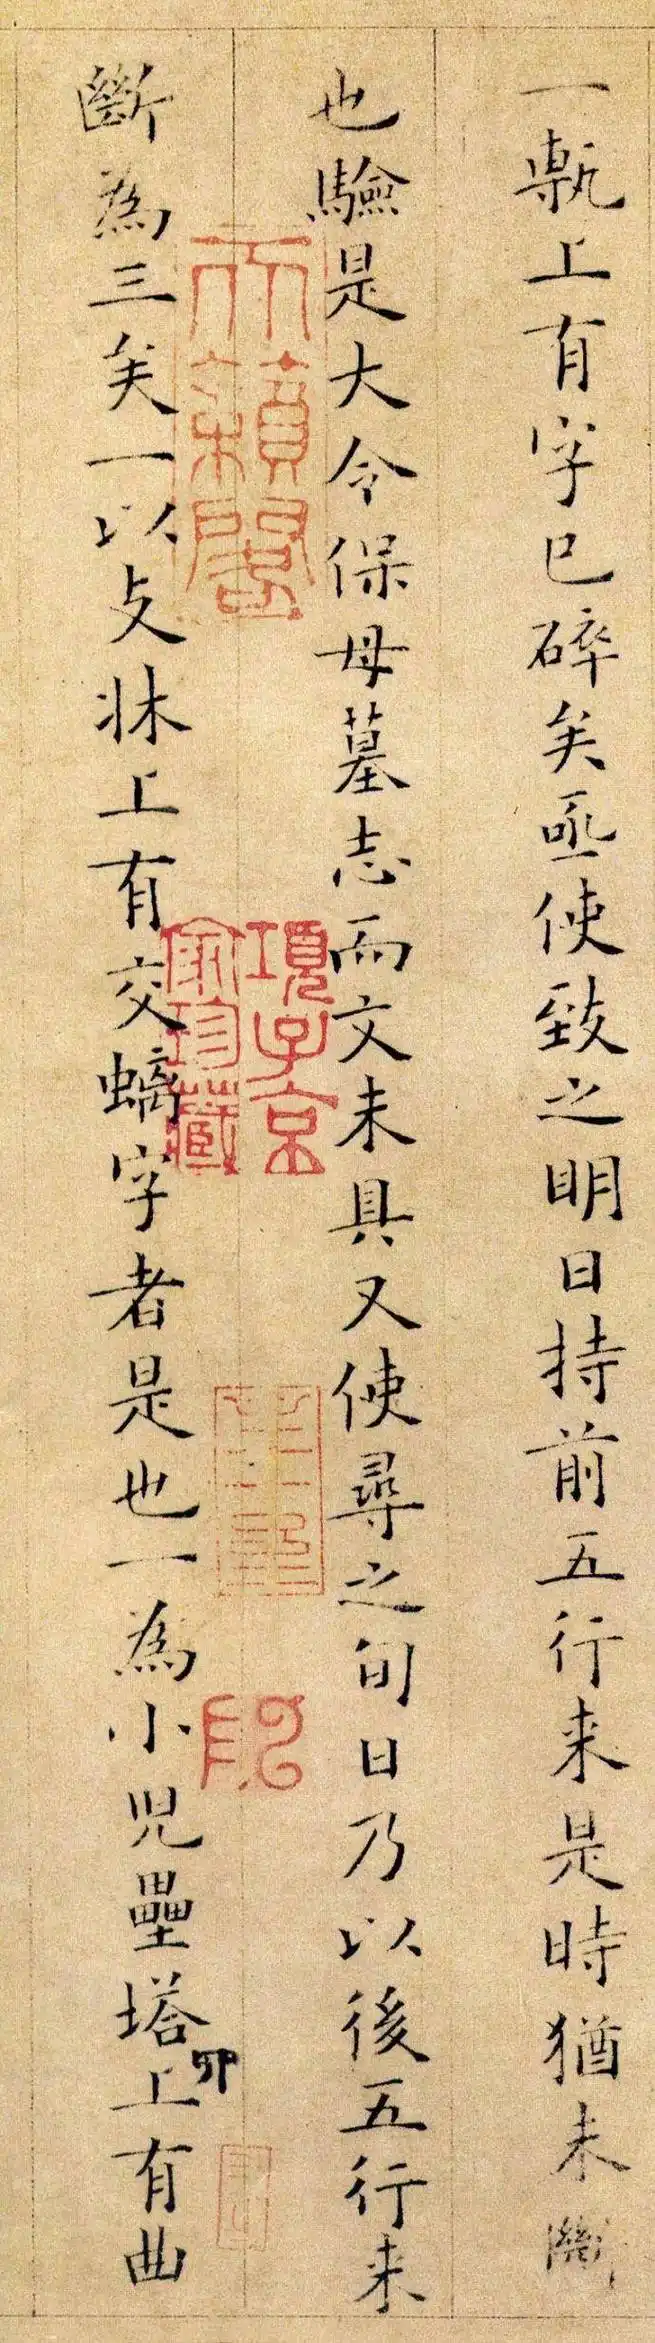 一甎上有字已碎矣亟使致之明日持前五行来是時猶未斷
也驗是大令保母墓志而文未具又使尋之旬日乃以後五行来
斷為三矣一以支牀上有交螭字者是也一為小兒壘塔上有曲
項子京家珍藏